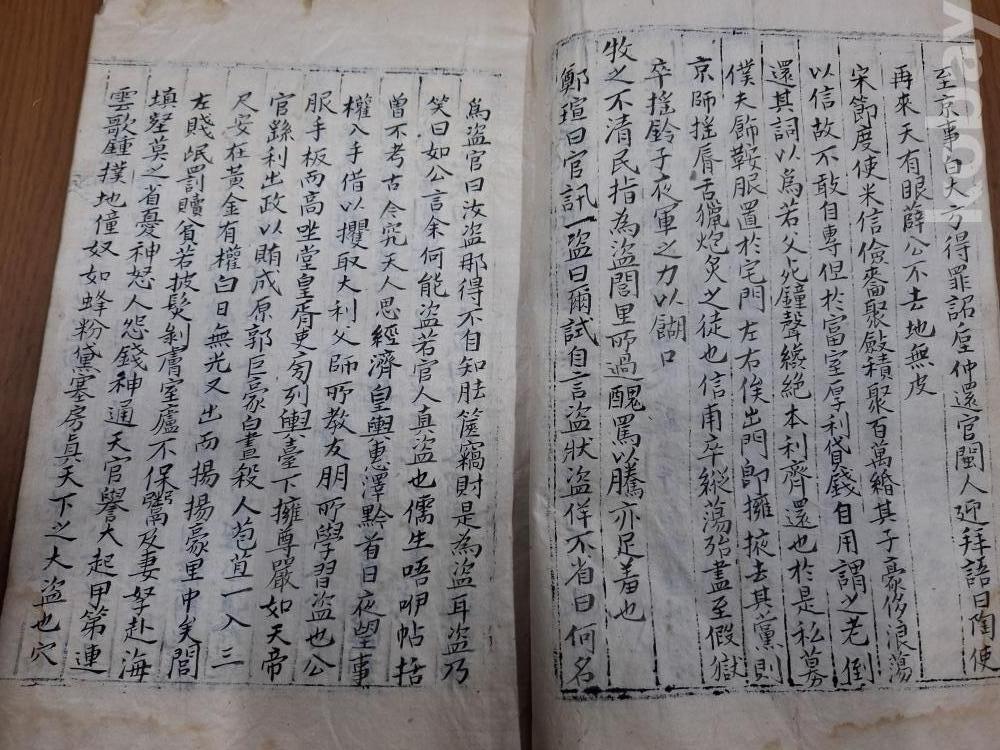 至京事白大方得罪詔屋仲還官閩人迎拜語曰陶使
再來天有眼薛公不去地無皮
宋節度使米信儉嗇聚斂積聚百萬緡其子豪侈浪蕩
以信故不敢自專但於富室厚利貸錢自用謂之老倒
還其詞以為若父死鐘聲纔絶本利齊還也於是私募
僕夫飾鞍服置於宅門左右俟出門即擁掖去其黨則
京師搖唇舌獵炮炙之徒也信甫卒縱蕩殆盡至假獄
卒搖鈴子夜軍之力以餬口
牧之不清民指為盜閭里所過醜罵以騰亦足羞也
鄭瑄曰官訊一盜曰爾試自言盜狀盜佯不省曰何名
為盜官曰汝盜那得不自知胠篋竊財是為盜耳盜乃
笑曰如公言余何能盜若官人真盜也儒生唔咿帖括
曾不考古今究天人思經濟皇輿惠澤黔首日夜望事
權入手借以攫取大利父師所教友朋所學習盜也公
服手板而高坐堂皇胥吏旁列輿臺下擁尊嚴如天帝
官繇利出政以賄成原郭巨豪白晝殺人苞苴一入三
尺安在黃金有權白日無光又出而揚揚豪里中矣閭
左賤氓罰贖貧若披髮剝膚室廬不保鬻及妻孥赴海
填壑莫之省憂神怒人怨錢神通天官譽大起甲第連
雲歌鍾撲地僮奴如蜂粉黛塞房真天下之大盜也穴
kobay